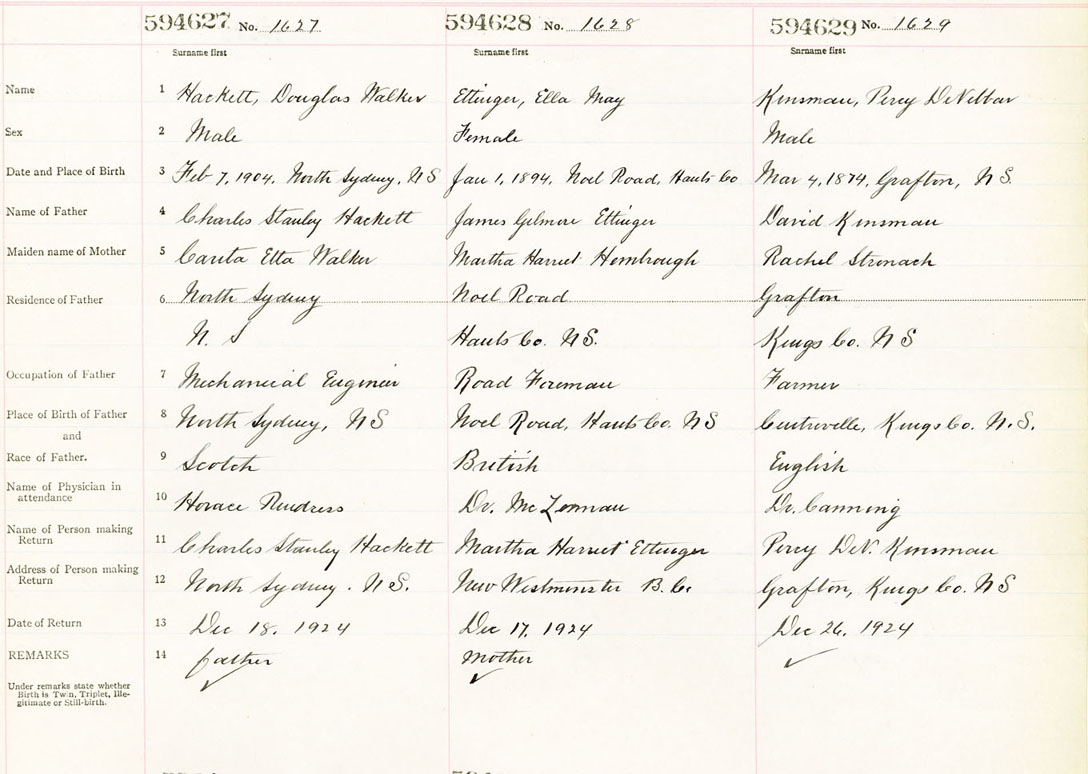 594627 No. 1627 594628 No. 1628 594629 No. 1629
Surname first Surname first Surname first
Name 1 Hackett, Douglas Walker Ettinger, Ella May Kinsman, Percy
Sex 2 Male Female Male
Date and Place of Birth 3 Feb 7, 1904, North Sydney, N S Jan 1, 1894, Noel Road, Hants Co Mar 4, 1874, Grafton, N S.
Name of Father 4 Charles Stanley Hackett James Gilmore Ettinger David Kinsman
Maiden name of Mother 5 Etta Walker Martha Harriet Rachel Stronach
Residence of Father 6 North Sydney Noel Road Grafton
N. S Hants Co. N S. Kings Co. N S
Occupation of Father 7 Mechanical Engineer Road Foreman Farmer
Place of Birth of Father 8 North Sydney, N S Noel Road, Hants Co. N S Centreville, Kings Co. N. S.
and
Race of Father. 9 Scotch British English
Name of Physician in
attendance 10 Horace Dr. McLennan Dr. Canning
Name of Person making
Return 11 Charles Stanley Hackett Martha Harriet Ettinger Percy DeN. Kinsman
Address of Person making
Return 12 North Sydney. N S. New Westminster B. C. Grafton, Kings Co. N S
Date of Return 13 Dec 18. 1924 Dec 17, 1924 Dec 26, 1924
REMARKS 14 father mother
Under remarks state whether
Birth is Twin, Triplet, Ille-
gitimate or Still-birth.